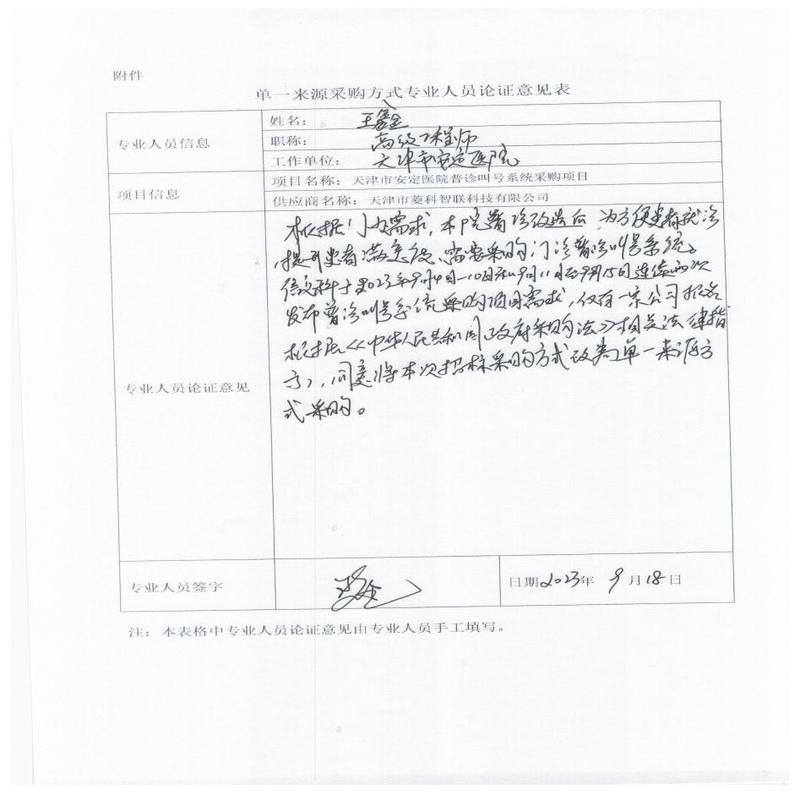 附件
单一来源采购方式专业人员论证意见表
专业人员信息
姓名：王鑫
职称：高级工程师
工作单位：天津市安定医院
项目信息
项目名称：天津市安定医院普诊叫号系统采购项目
供应商名称：天津市菱科智联科技有限公司
专业人员论证意见
根据 需求，本院普诊改造后，为方便患者就诊
提升患者满意度、需要采购门诊普诊叫号系统。
信息科于2023年9月4日-10日和9月11日至9月15日连续两次
发布普诊叫号系统采购项目需求，仅有一家公司报名
根据《中华人民共和国政府采购法》相关法律指
，同意将本次招标采购方式改为单一来源方
式采购。
专业人员签字
日期2023年 9月18日
注：本表格中专业人员论证意见由专业人员手工填写。